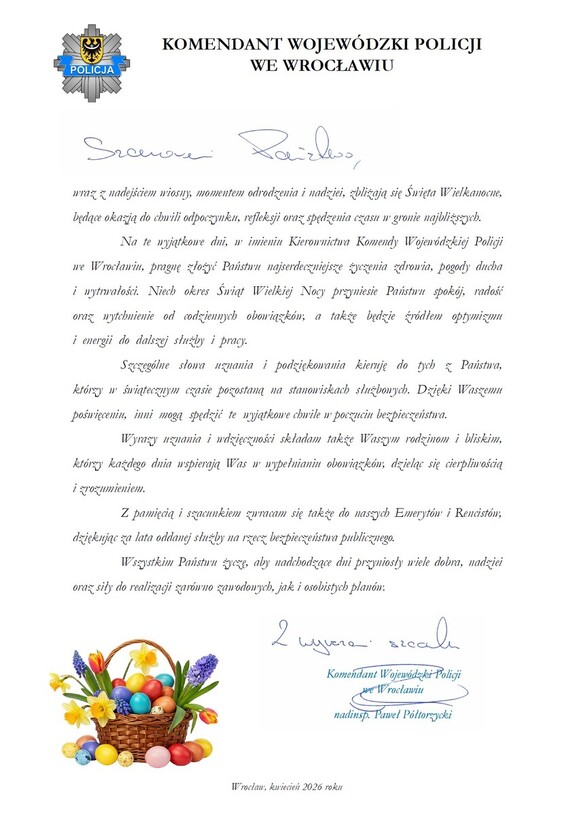 KOMENDANT WOJEWÓDZKI POLICJI
WE WROCŁAWIU
POLICJA
Szanowni Państwo,
wraz z nadejściem wiosny, momentem odrodzenia i nadziei, zbliżają się Święta Wielkanocne,
będące okazją do chwili odpoczynku, refleksji oraz spędzenia czasu w gronie najbliższych.
Na te wyjątkowe dni, w imieniu Kierownictwa Komendy Wojewódzkiej Policji
we Wrocławiu, pragnę złożyć Państwu najserdeczniejsze życzenia zdrowia, pogody ducha
i wytrwałości. Niech okres Świąt Wielkiej Nocy przyniesie Państwu spokój, radość
oraz wytchnienie od codziennych obowiązków, a także będzie źródłem optymizmu
i energii do dalszej służby i pracy.
Szczególne słowa uznania i podziękowania kieruję do tych z Państwa,
którzy w świątecznym czasie pozostaną na stanowiskach służbowych. Dzięki Waszemu
poświęceniu, inni mogą spędzić te wyjątkowe chwile w poczuciu bezpieczeństwa.
Wyrazy uznania i wdzięczności składam także Waszym rodzinom i bliskim,
którzy każdego dnia wspierają Was w wypełnianiu obowiązków, dzieląc się cierpliwością
i zrozumieniem.
Z pamięcią i szacunkiem zwracam się także do naszych Emerytów i Rencistów,
dziękując za lata oddanej służby na rzecz bezpieczeństwa publicznego.
Wszystkim Państwu życzę, aby nadchodzące dni przyniosły wiele dobra, nadziei
oraz siły do realizacji zarówno zawodowych, jak i osobistych planów.
Z wyrazami szacunku
Komendant Wojewódzki Policji
we Wrocławiu
nadinsp. Paweł Półtorzycki
Wrocław, kwiecień 2026 roku